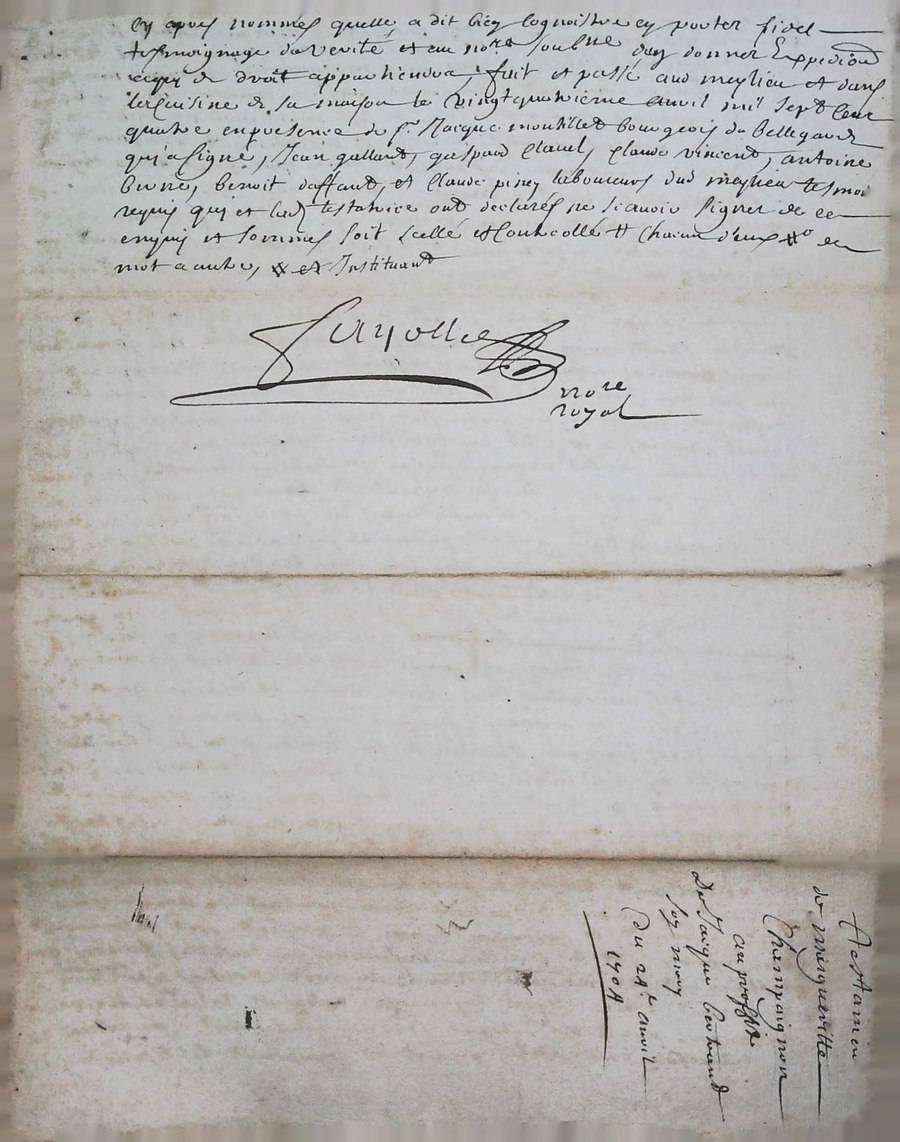 cy apres nommés quelle a dit bien cognoistre en porter fidel
tesmoignage de verité et au nore soubne den donner Expedition
a qui de droit appartiendra, fait et passé aud meylieu et dans
la cuisine de sa maison le vingtquatrieme avril mil sept cent
quatre en presence de sr Jacque moutillet bourgeois de bellegarde
qui a signé, Jean galland, gaspard clavel, claude vincent, antoine
brune, benoit daffaud, et claude piney laboureurs dud meylieu tesmoi
requis qui et lad testatrice ont declarés ne scavoir signer de ce
enquis et sommés soit scellé et controllé # chacun d'eux #o en
mot a autre, # et Instituant
Fayolle
nore
royal
Testamen
de
Champaignon
au proffit
De Jaique bertrand
son mary
Du 24e avril
1704